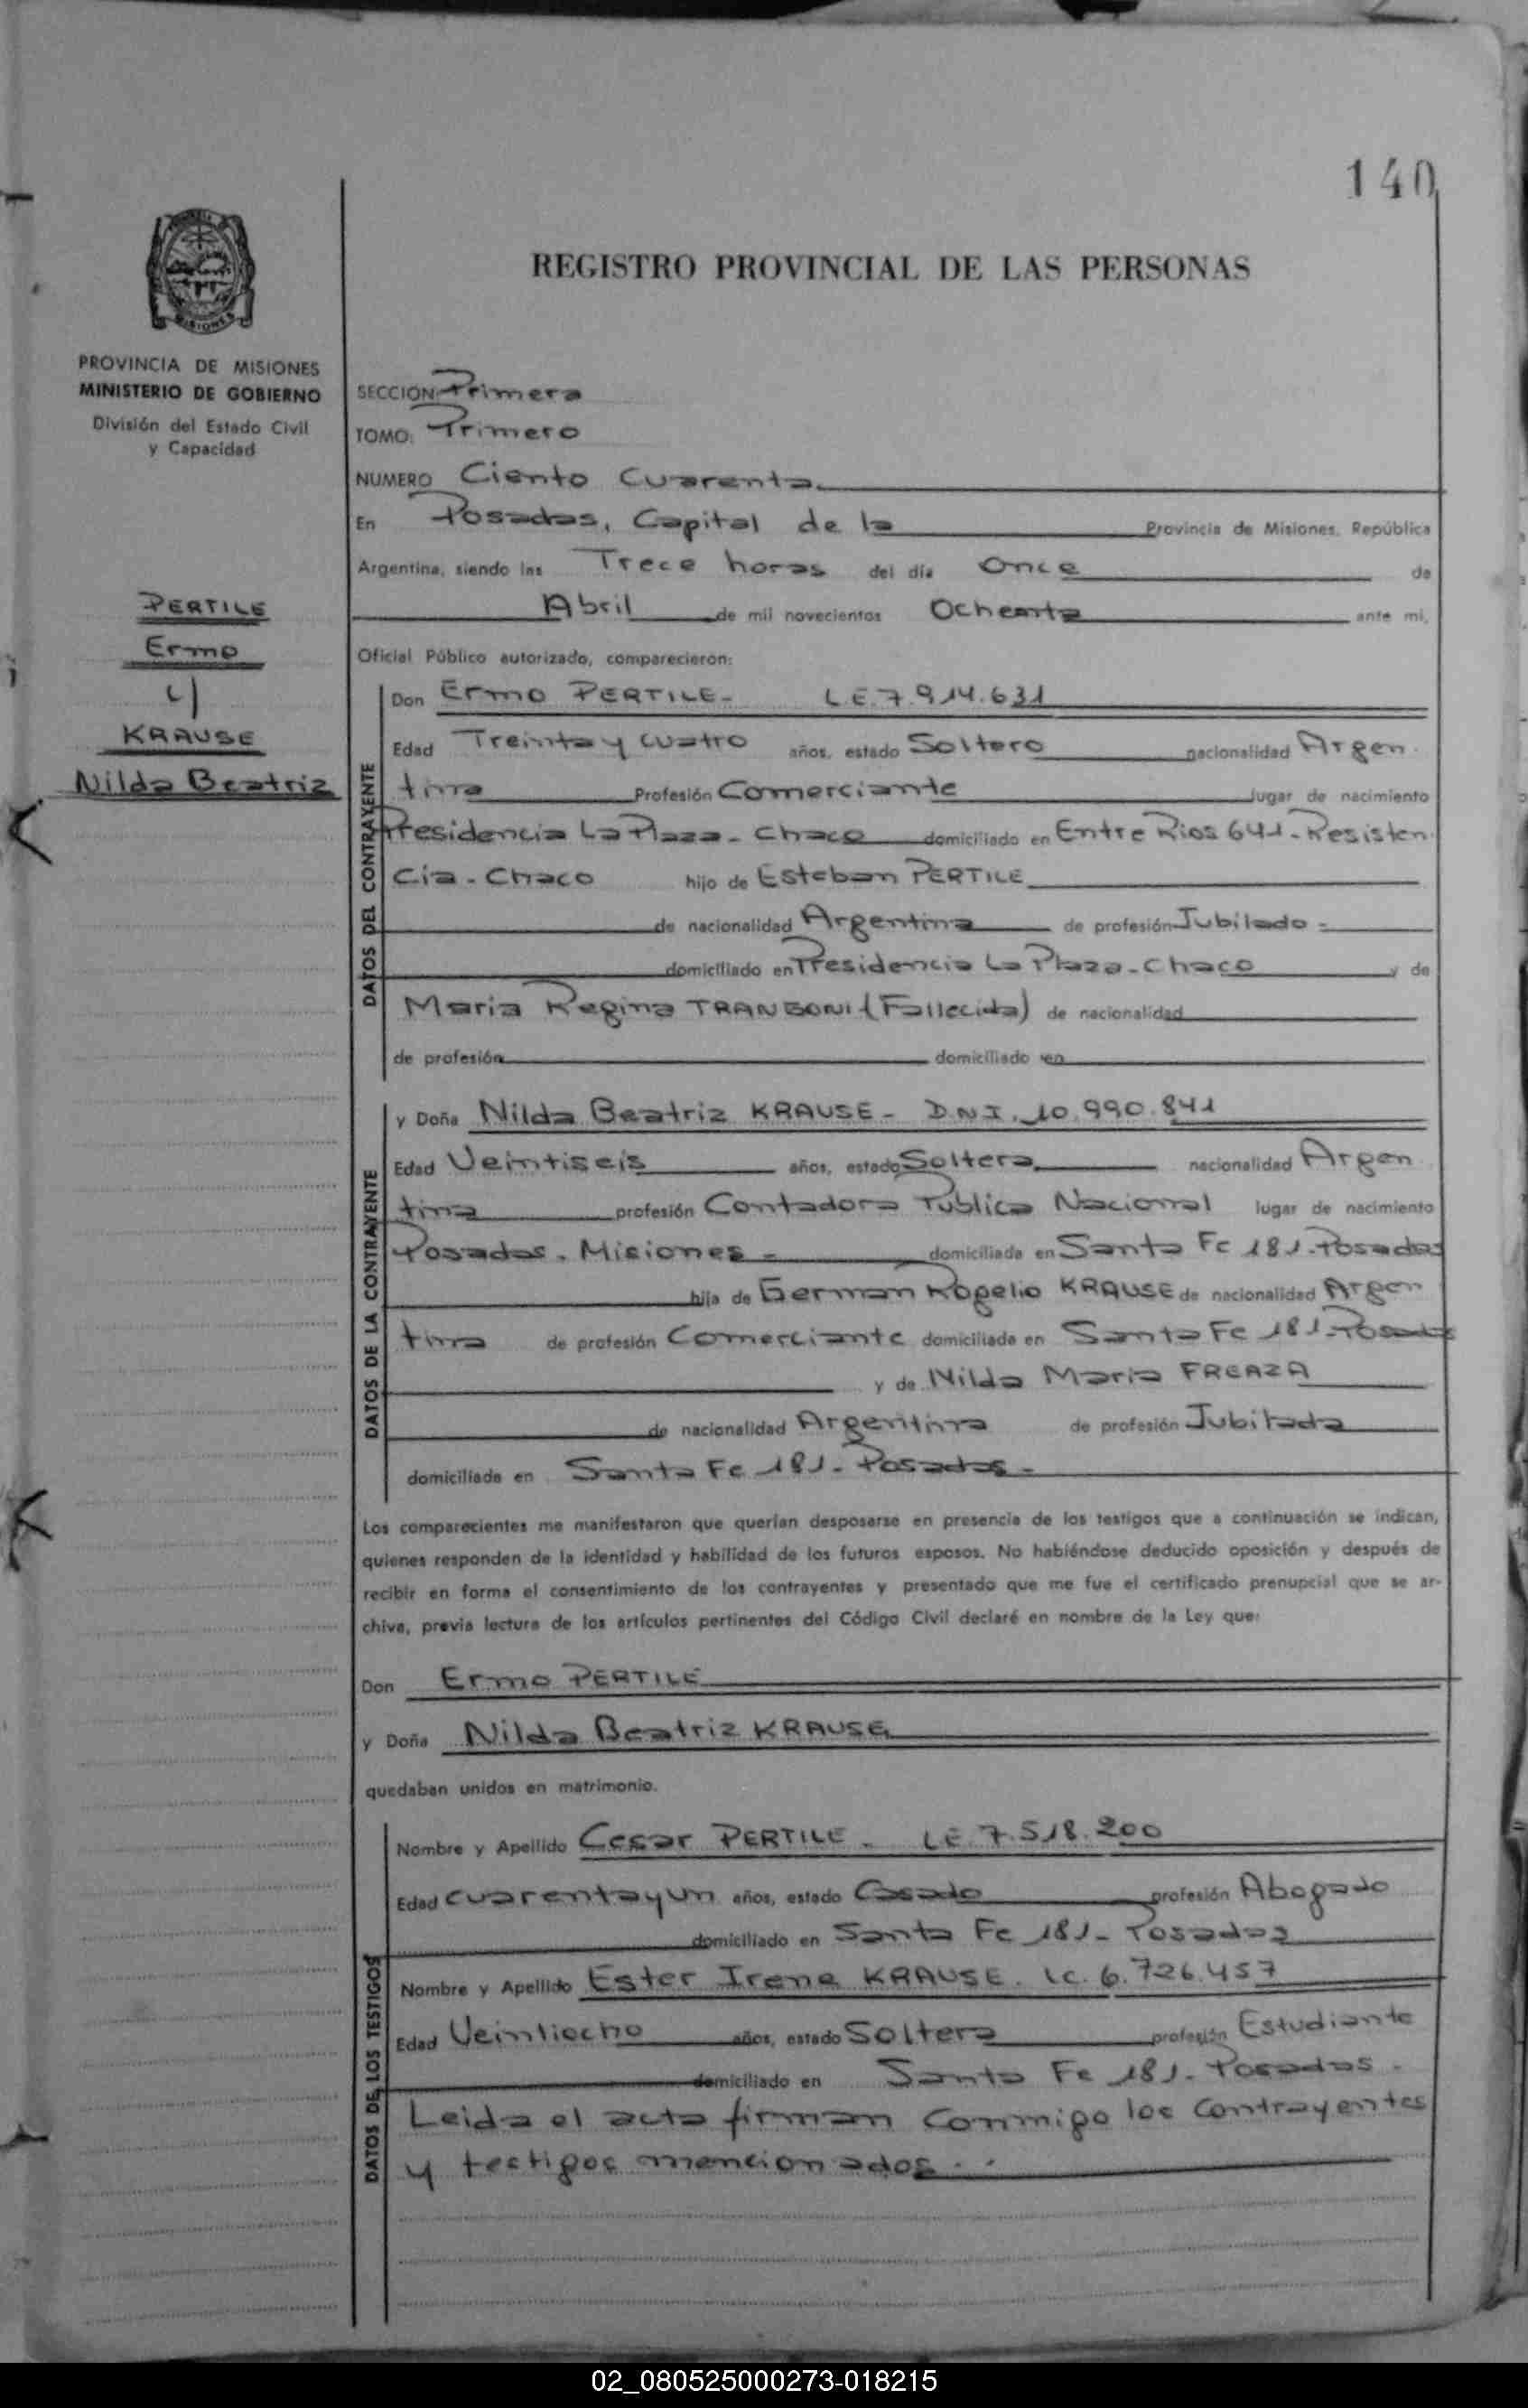 140
REGISTRO PROVINCIAL DE LAS PERSONAS
MISIONES
PROVINCIA DE MISIONES
MINISTERIO DE GOBIERNO
División del Estado Civil
y Capacidad
PERTILE
Ermo
c/
KRAUSE
Nilda Beatriz
SECCION: Primera
TOMO: Primero
NUMERO Ciento Cuarenta
En Posadas, Capital de la Provincia de Misiones, República
Argentina, siendo las Trece horas del día Once de
Abril de mil novecientos Ochenta ante mi,
Oficial Público autorizado, comparecieron:
DATOS DEL CONTRAYENTE
Don Ermo PERTILE - LE. 7.914.631
Edad Treinta y cuatro años, estado Soltero nacionalidad Argen
tina Profesión Comerciante lugar de nacimiento
Presidencia La Plaza - Chaco domiciliado en Entre Rios 641 - Resisten
cia - Chaco hijo de Esteban PERTILE
de nacionalidad Argentina de profesión Jubilado -
domiciliado en Presidencia La Plaza - Chaco y de
Maria Regina TRANGONI (Fallecida) de nacionalidad
de profesión domiciliado en
DATOS DE LA CONTRAYENTE
y Doña Nilda Beatriz KRAUSE - D.N.I. 10.990.841
Edad Veintiseis años, estado Soltera nacionalidad Argen
tina profesión Contadora Publica Nacional lugar de nacimiento
Posadas - Misiones - domiciliada en Santa Fe 181 - Posadas
hija de German Rogelio KRAUSE de nacionalidad Argen
tina de profesión Comerciante domiciliada en Santa Fe 181 - Posadas
y de Nilda Maria FREAZA
de nacionalidad Argentina de profesión Jubilada
domiciliada en Santa Fe 181 - Posadas -
Los comparecientes me manifestaron que querían desposarse en presencia de los testigos que a continuación se indican,
quienes responden de la identidad y habilidad de los futuros esposos. No habiéndose deducido oposición y después de
recibir en forma el consentimiento de los contrayentes y presentado que me fue el certificado prenupcial que se ar-
chiva, previa lectura de los artículos pertinentes del Código Civil declaré en nombre de la Ley que:
Don Ermo PERTILE
y Doña Nilda Beatriz KRAUSE
quedaban unidos en matrimonio.
DATOS DE LOS TESTIGOS
Nombre y Apellido Cesar PERTILE - LE. 7.518.200
Edad cuarenta y un años, estado Casado profesión Abogado
domiciliado en Santa Fe 181 - Posadas
Nombre y Apellido Ester Irene KRAUSE. LC. 6.726.457
Edad Veintiocho años, estado Soltera profesión Estudiante
domiciliado en Santa Fe 181 - Posadas -
Leida el acta firman conmigo los contrayentes
y testigos mencionados - -
02_080525000273-018215